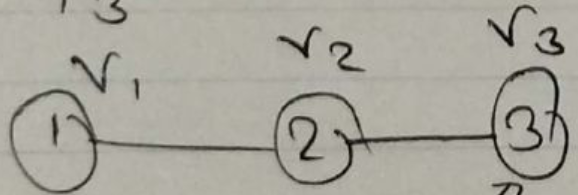 3
V₁ V₂ V₃
1 2 3